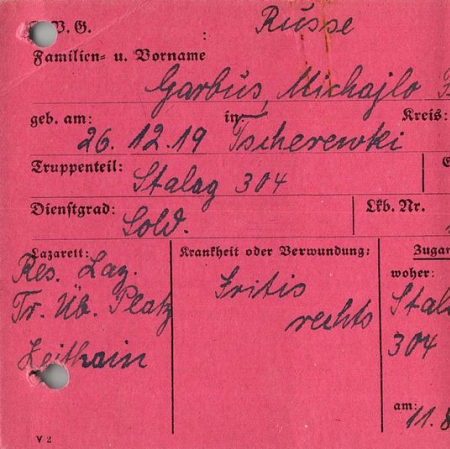 V. G. : Russe
Familien- u. Vorname
Garbus, Michajlo
geb. am: in: Kreis:
26.12.19 Tscherewki
Truppenteil: Stalag 304
Dienstgrad: Sold. Lkb. Nr.
Lazarett: Krankheit oder Verwundung: Zugan
Res. Laz. Iritis woher:
Tr. Üb. Platz rechts Stal
Zeithain 304
am: 11.8
V 2